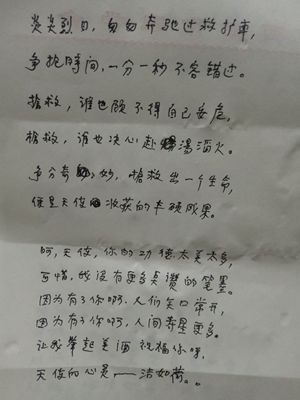 炎炎烈日，匆匆奔驰过救护车，
争抢时间，一分一秒不容错过。
抢救，谁也顾不得自己安危，
抢救，谁也决心赴汤滔火。
争分夺秒，抢救出一个生命，
便是天使收获的丰硕成果。
啊，天使，你的功德太美太多，
可惜，我没有更多桌赞的笔墨。
因为有了你啊，人们笑口常开，
因为有了你啊，人间寿星更多。
让我举起美酒祝福你呀，
天使的心灵——洁如荷。